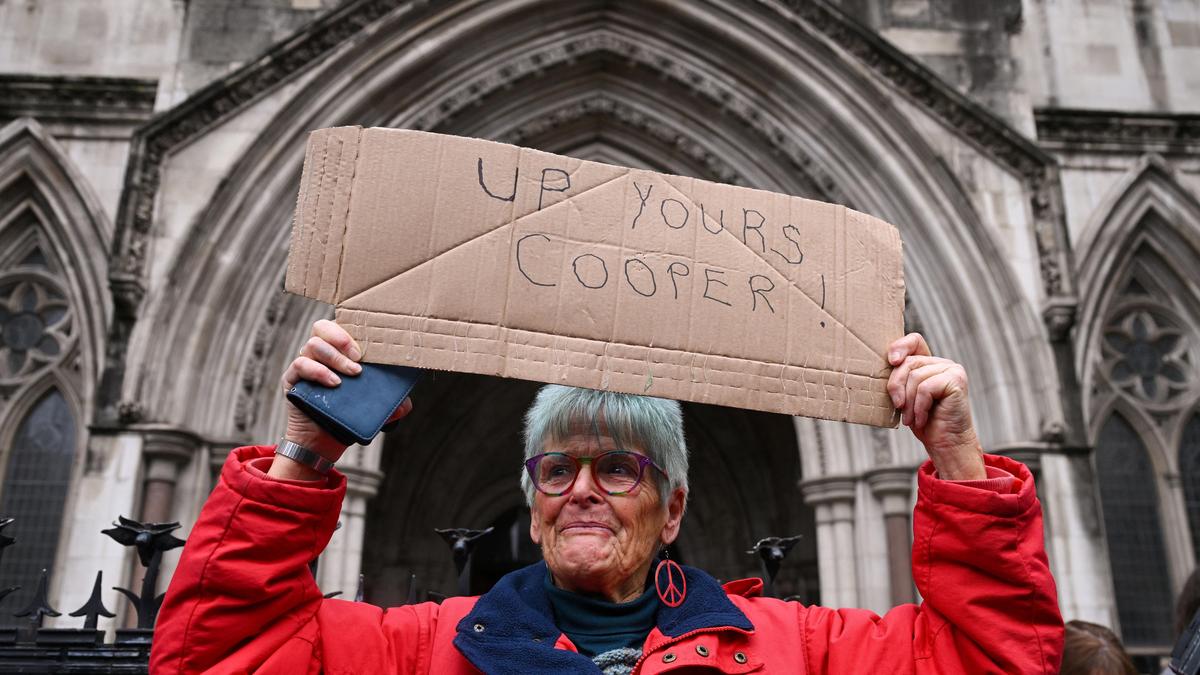 UP YOURS
COOPER!